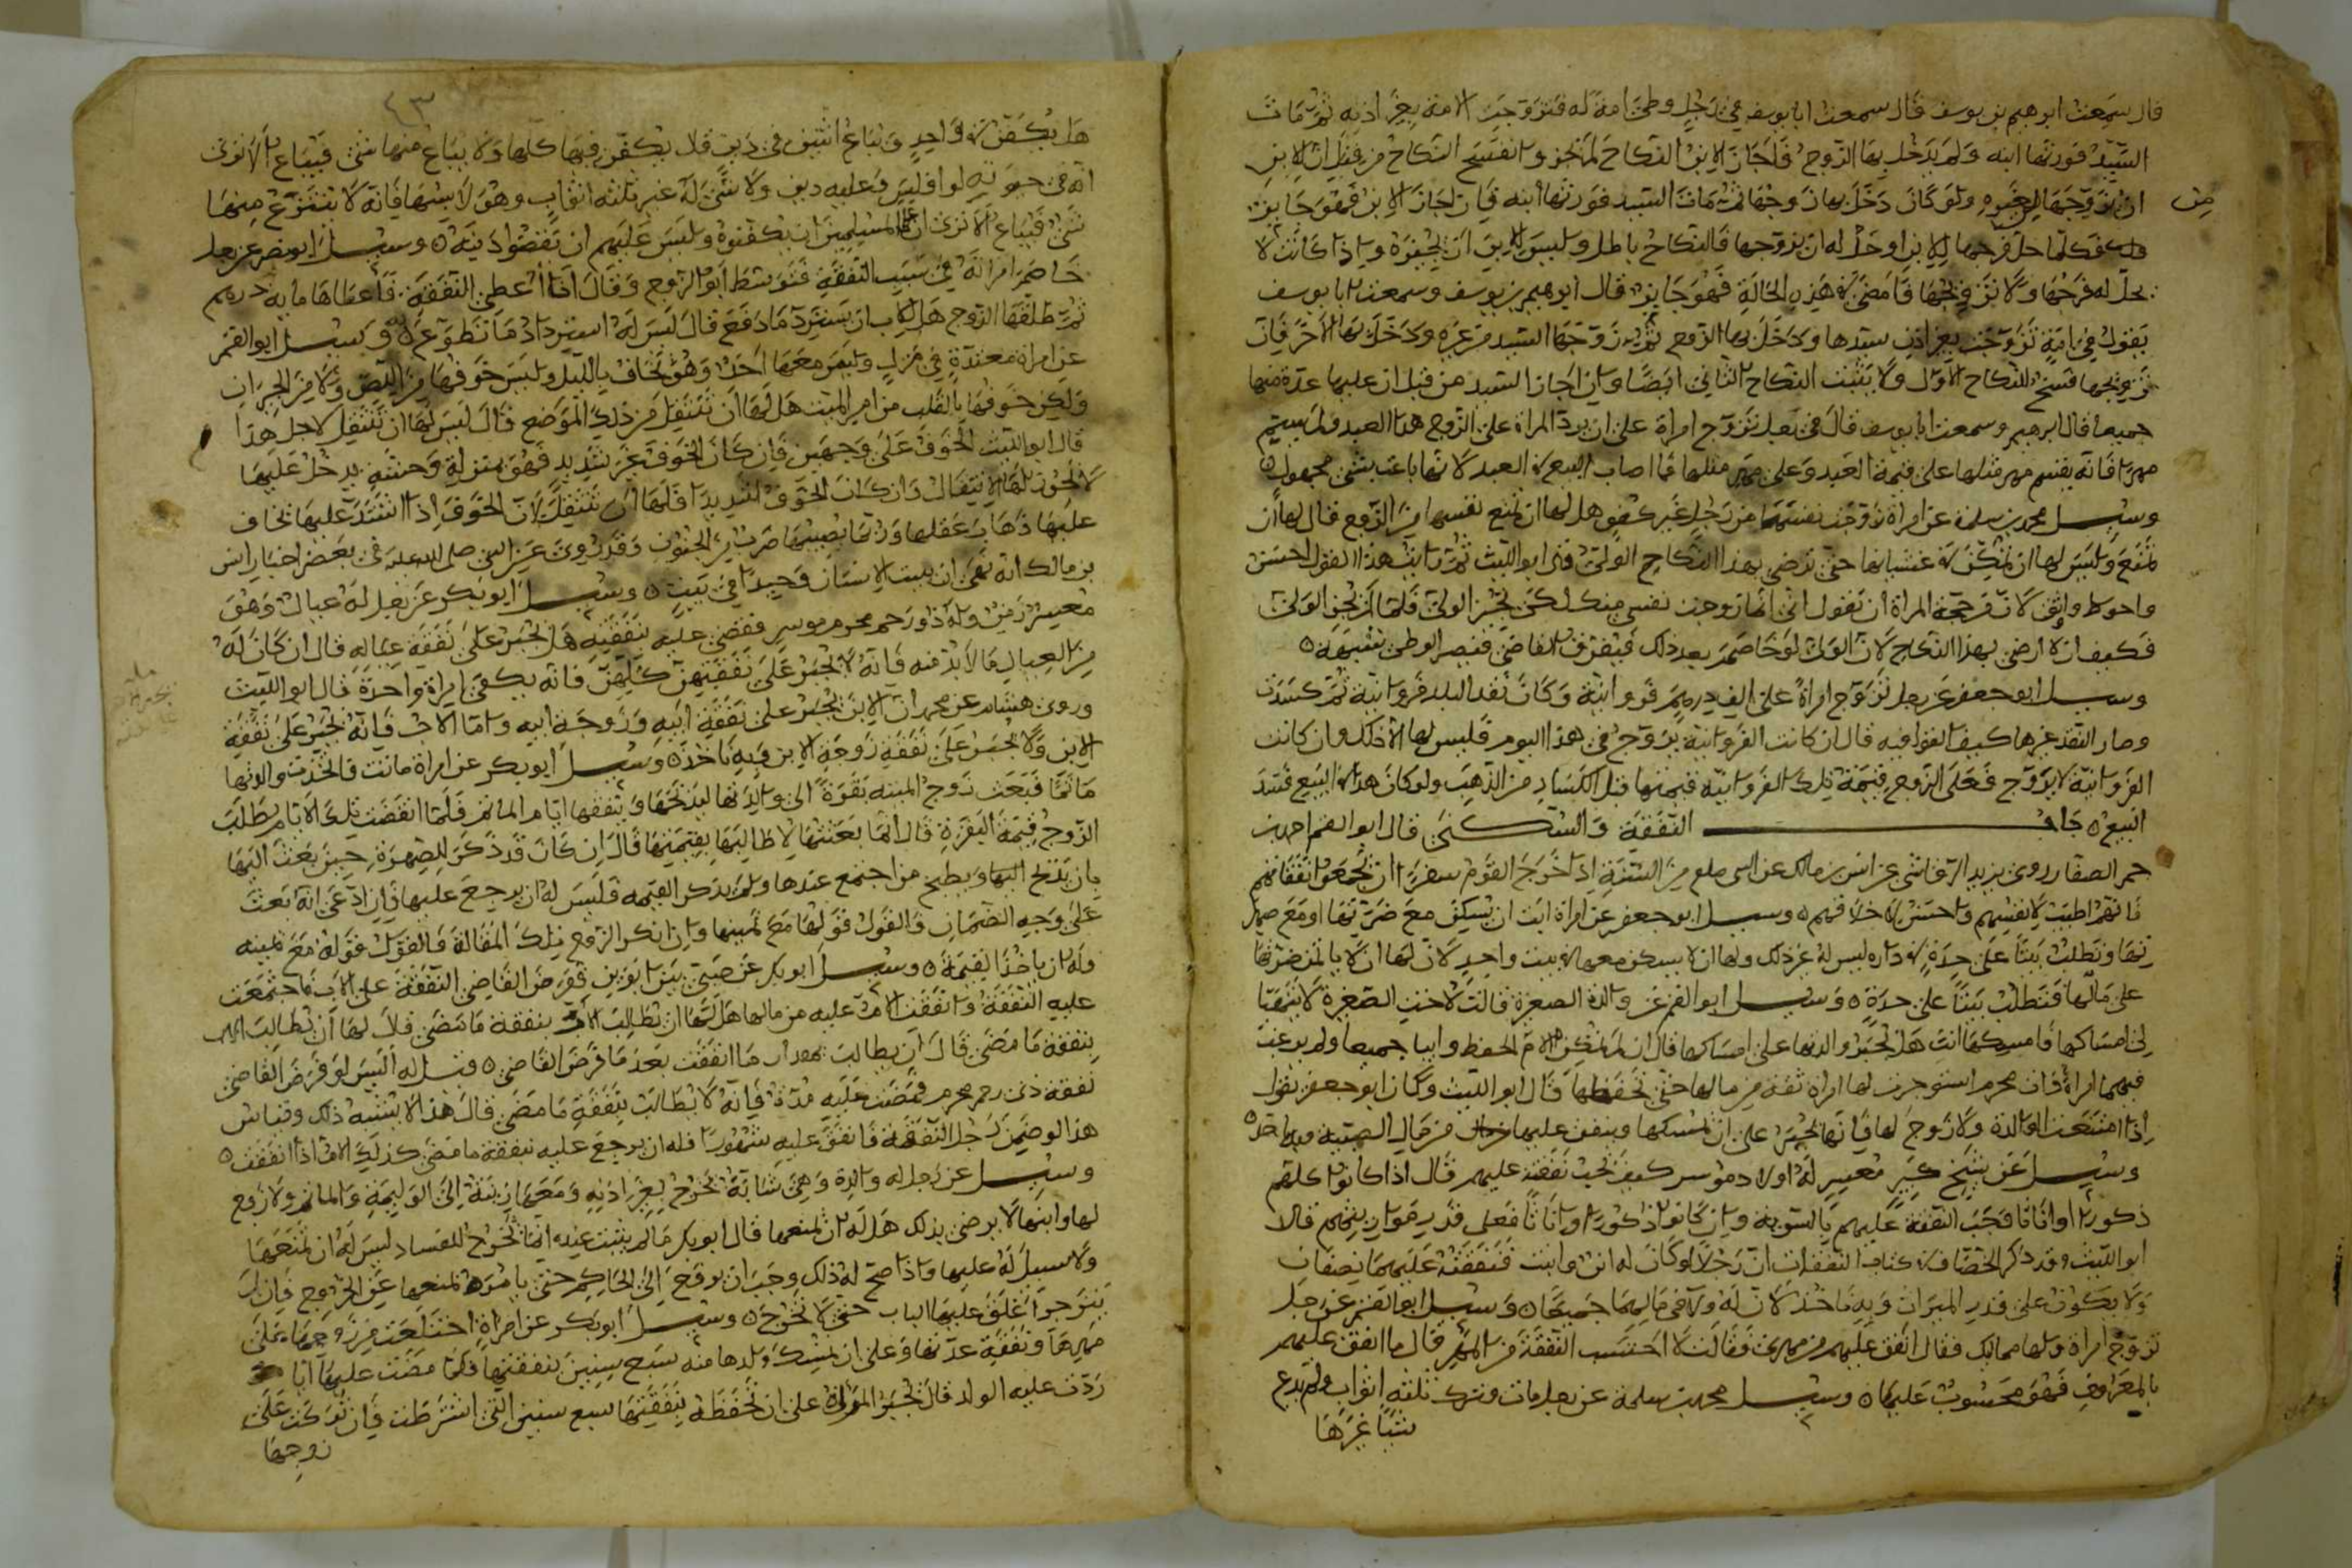 قال سمعت ابرهيم بن يوسف قال سمعت ابا يوسف في رجل وطئ امة له فتزوجت الامة بغير اذنه ثم مات
السيد فورثها ابنه ولم يدخل بها الزوج فاجاز الابن النكاح لم يجز وانفسخ النكاح من قبل ان للابن
ان يزوجها لغيره ولو كان دخل بها زوجها ثم مات السيد فورثها ابنه فان اجاز الابن فهو جائز
من
فكلما حل فرجها للابن او حل له ان يزوجها فالنكاح باطل وليس للابن ان يجيزه واذا كانت لا
يحل له فرجها ولا تزويجها فامضى في هذه الحالة فهو جايز قال ابرهيم بن يوسف وسمعت ابا يوسف
يقول في امة تزوجت بغير اذن سيدها ودخل بها الزوج ثم زوجها السيد من غيره ودخل بها الاخر فان
تزويجها فسخ للنكاح الاول ولا يثبت النكاح الثاني ايضا وان اجاز السيد من قبل ان عليها عدة منها
جميعا قال ابرهيم وسمعت ابا يوسف قال في رجل تزوج امراة على ان يرد المراة على الزوج هذا العبد ولم يسم
مهرا فانه يقسم مهر مثلها على قيمة العبد وعلى مهر مثلها فما اصاب البيع في العبد لانها باعت بشئ مجهول
وسئل محمد بن سلمة عن امراة زوجت نفسها من رجل غير كفو هل لها ان تمنع نفسها من الزوج قال لها ان
تمنع وليس لها ان تمكن من غشيانها حتى يرضى بهذا النكاح الولي قال ابو الليث هذا القول احسن
واحوط واوثق لان من حجة المراة ان تقول اني انما زوجت نفسي منك لكي يجيز الولي فلما لم يجز الولي
فكيف ان لا ارضى بهذا النكاح لان الولي لو خاصم بعد ذلك فيفرق القاضي فيصير الوطئ بشبهة
وسئل ابو جعفر عن رجل تزوج امراة على الف درهم وكان نقد البلد ثم كسدت
وصار النقد غيرها كيف القول فيه قال ان كانت بزوج في هذا اليوم فليس لها الا ذلك وان كانت
لا تروج فعلى الزوج قيمة تلك قيمتها قبل الكساد من الذهب ولو كان هذا في البيع فسد
البيع باب النفقة والسكنى قال ابو القسم احمد بن
حم الصفار روى يزيد الرقاشي عن انس بن مالك عن النبي صلعم من السنة اذا خرج القوم سفرا ان يجمعوا نفقاتهم
فانه اطيب لانفسهم واحسن لاخلاقهم وسئل ابو جعفر عن امراة ابت ان تسكن مع ضرتها او مع
وتطلب بيتا على حدة في داره ليس له غير ذلك ولها ان لا يسكن معها في بيت واحد لان لها ان لا
على مالها فتطلب بيتا على حدة وسئل ابو القسم عن والدة الصغيرة قالت لاخت الصغيرة
امساكها فامسكها انت هل تجبر والدتها على امساكها قال ان لم تمكن الام الحفظ وابيا جميعا ولم يرغب
فيهما امراة فان محرم استوجرت لها امراة ثقة من مالها حتى تحفظها قال ابو الليث وكان ابو جعفر يقول
اذا امتنعت الوالدة ولا زوج لها فانها تجبر على ان تمسكها وينفق عليها من مال اليتيمة وبه ناخذ
وسئل عن شيخ كبير معسر له اولاد موسر كيف تجب نفقته عليهم قال اذا كانوا كلهم
ذكورا او اناثا فتجب النفقة عليهم بالسوية وان كانوا ذكورا واناثا فعلى قدر مواريثهم قال
ابو الليث وقد ذكر الخصاف في كتاب النفقات ان رجلا لو كان له ابن وابنت فنفقته عليهما نصفان
ولا يكون على قدر الميراث وبه ناخذ وسئل ابو القسم عن رجل
تزوج امراة ولها مماليك فقال انفق عليهم من مهري فقالت لا احتسب النفقة من المهر قال ما انفق عليهم
بالمعروف فهو محسوب عليها وسئل محمد بن سلمة عن رجل مات وترك ثلثة اثواب ولم يدع
شيئا غيرها
٤٣
هل يكفن في واحد ويباع اثنين في دين قال يكفن فيها كلها ولا يباع منها شئ فيباع الا ترى
انه في حيوته لو افلس وعليه دين ولا شئ له غير ثلثة اثواب وهو لابسها فانه لا ينتزع منها
شئ فيباع الا ترى ان على المسلمين ان يكفنوه وليس عليهم ان يقضوا دينه وسئل ابو نصر عن رجل
خاصم امراته في سبب النفقة فتوسط ابو الزوج وقال انا اعطي النفقة فاعطاها مايه درهم
ثم طلقها الزوج هل للاب ان يسترد ما دفع قال ليس له استرداد ما تطوع وسئل ابو القسم
عن امراة معتدة في منزل وليس معها احد وهو تخاف بالليل وليس خوفها من اللص ولا من الجيران
ولكن خوفها بالقلب من امر الميت هل لها ان تنتقل من ذلك الموضع قال ليس لها ان تنتقل لاجل هذا
قال ابو الليث الخوف على وجهين فان كان الخوف غير شديد فهو بمنزلة وحشة يدخل عليها
لا يجوز لها الانتقال وان كان الخوف شديدا فلها ان تنتقل لان الخوف اذا اشتد عليها تخاف
عليها ذهاب عقلها وربما يصيبها ضرب من الجنون وقد روي عن النبي صلى الله عليه في بعض اخبار انس
بن مالك انه نهى ان يبيت الانسان وحيدا في بيت وسئل ابو بكر عن رجل له عيال وهو
معسر زمن وله ذو رحم محرم موسر فقضى عليه بنفقته هل يجبر على نفقة عياله قال ان كان له
من العيال ما لا بد منه فانه لا يجبر على نفقتهن كلهن فانه يكفي امراة واحدة قال ابو الليث
وروى هشام عن محمد ان الابن يجبر على نفقة ابيه وزوجة ابيه واما الاب فانه يجبر على نفقة
الابن ولا يجبر على نفقة زوجة الابن وبه ناخذ وسئل ابو بكر عن امراة ماتت فاتخذت والدتها
ماتما فبعث زوج الميتة بقرة الى والدتها لتذبحها وتنفقها ايام الماتم فلما انقضت تلك الايام يطلب
الزوج قيمة البقرة قال انما بعثتها لاطالبها بقيمتها قال ان كان قد ذكر للصهرة حين بعث اليها
بان يذبح البقرة ويطبخ من اجتمع عندها ولم يذكر القيمة فليس له ان يرجع عليها فان ادعى انه بعث
على وجه الضمان فالقول قولها مع يمينها وان انكر الزوج تلك المقالة فالقول قوله مع يمينه
وله ان ياخذ القيمة وسئل ابو بكر عن صبي بين ابوين فرض القاضي النفقة على الاب
عليه النفقة وانفقت الام عليه من مالها هل لها ان تطالب الاب بنفقة ما مضى قال لها ان تطالب
بنفقة ما مضى قال ان يطالب ما انفقت بعد ما فرض القاضي قيل له اليس لو فرض القاضي
نفقة ذي رحم محرم فمضت عليه مدة فانه لا يطالب بنفقة ما مضى قال هذا لا يشبه ذلك وقياس
هذا لو ضمن رجل النفقة فانفق عليه شهورا فله ان يرجع عليه بنفقة ما مضى كذلك الام اذا انفقت
وسئل عن رجل له والدة وهي شابة تخرج بغير اذنه ومعها زينة الى الوليمة والماتم ولا زوج
لها وابنها لا يرضى بذلك هل له ان يمنعها قال ابو بكر ما لم يثبت عنده انها تخرج للفساد ليس له ان يمنعها
ولا سبيل له عليها واذا صح له ذلك وجب ان يرفع الى الحاكم حتى يامره بمنعها عن الخروج فان لم
تنزجر اغلق عليها الباب حتى لا تخرج وسئل ابو بكر عن امراة اختلعت من زوجها على
مهرها ونفقة عدتها وعلى ان تمسك ولدها منه سبع سنين بنفقتها فلما مضت عليها
ردت عليه الولد قال تجبر المراة على ان تحفظه بنفقتها سبع سنين التي اشترطت فان تركت على
زوجها